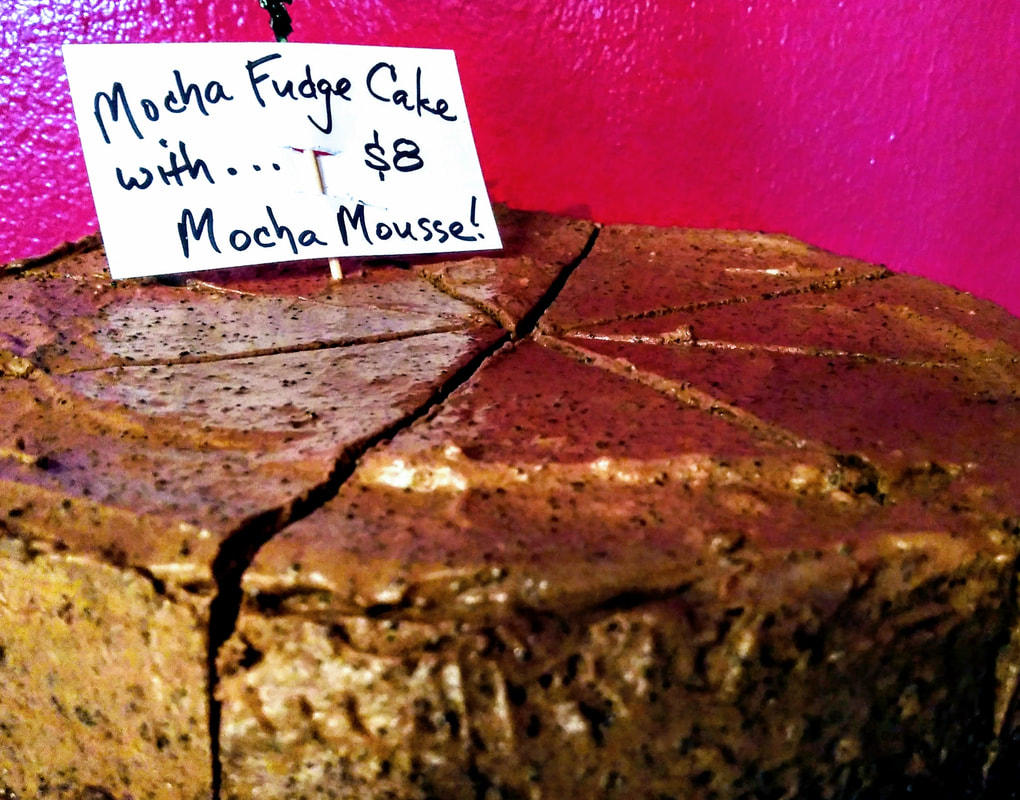 Mocha Fudge Cake
with... $8
Mocha Mousse!